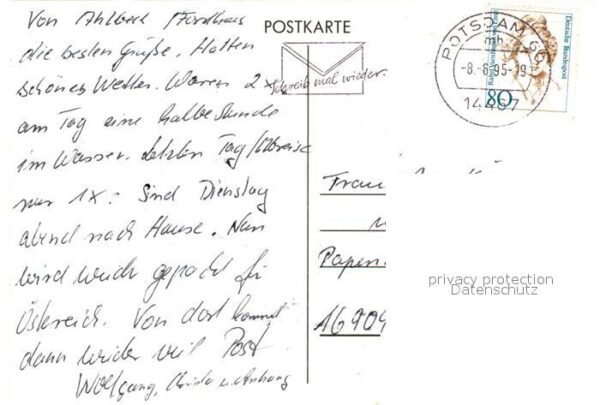 Von Ahlbeck / Forsthaus
die besten Grüße. Hatten
schönes Wetter. Waren 2x
am Tag eine halbe Stunde
im Wasser. Letzten Tag/Abreise
nur 1x. Sind Dienstag
abend nach Hause. Nun
wird wieder gepackt für
Österreich. Von dort kommt
dann wieder viel Post
Wolfgang, u. Anhang
POSTKARTE
Schreib mal wieder.
POTSDAM 66
mh
-8.-8.95-19
14467
Deutsche Bundespost
80
Frau
Papen
16909
privacy protection
Datenschutz